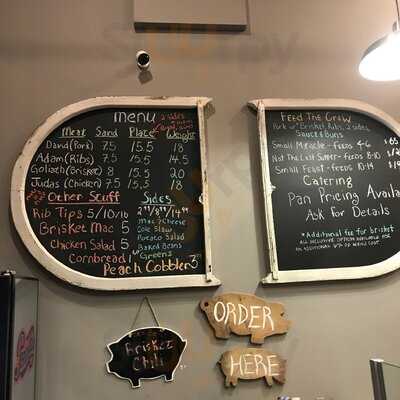 menu 2 sides
Meat Sand Plate Weight
David (Pork) 7.5 15.5 18
Adam (Ribs) 7.5 15.5 14.5
Goliath (Brisket) 8 15.5 20
Judas (Chicken) 7.5 15.5 18
Other Stuff
Rib Tips 5/10/16
Brisket Mac 5
Chicken Salad 5
Cornbread 1
Peach Cobbler 3
Sides
2"/8"/14"
Mac & Cheese
Cole Slaw
Potato Salad
Baked Beans
Greens
Feed The Crew
Pork w/ Brisket Ribs, 2 sides,
Sauce & Buns
Small Miracle - Feeds 4-6
Not The Last Supper - Feeds 8-10
Sinful Feast - Feeds 10-14
Catering
Pan Pricing Availa
Ask for Details
*Additional fee for brisket
Brisket
Chili
ORDER
HERE